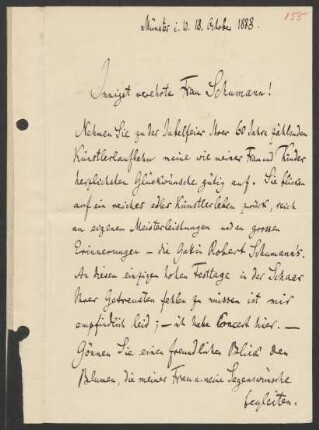 155
Münster i. W. 18. October 1888.
Innigst verehrte Frau Schumann!
Nehmen Sie zu der Jubelfeier Ihrer 60 Jahre zählenden
Künstlerlaufbahn meine wie meiner Frau und Kinder
herzlichsten Glückwünsche gütig auf. Sie blicken
auf ein reiches edles Künstlerleben zurück, reich
an eigenen Meisterleistungen und an grossen
Erinnerungen – die Gattin Robert Schumann's.
An diesem einzigen hohen Festtage in der Schaar
Ihrer Getreusten fehlen zu müssen ist mir
empfindlich leid; – ich habe Concert hier. –
Gönnen Sie einen freundlichen Blick den
Blumen, die meiner Frau u. meine Segenswünsche
begleiten.